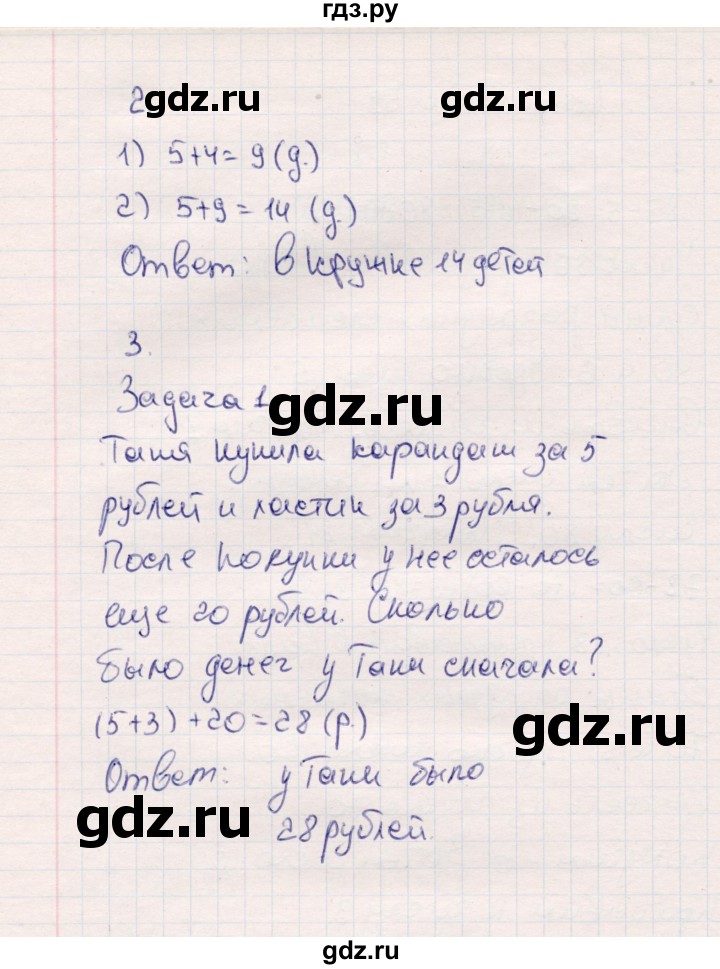 гдз.ру
2
gdz.ru
gdz.ru
1) 5+4=9(д.)
2) 5+9=14(д.)
Ответ: в кружке 14 детей
3.
Задача 1
gdz.ru
Таня купила карандаш за 5
рублей и ластик за 3 рубля.
После покупки у нее осталось
еще 20 рублей. Сколько
было денег у Тани сначала?
(5+3)+20=28(р.)
gdz.ru
Ответ: у Тани было
gdz.ru
28 рублей.
gdz.ru